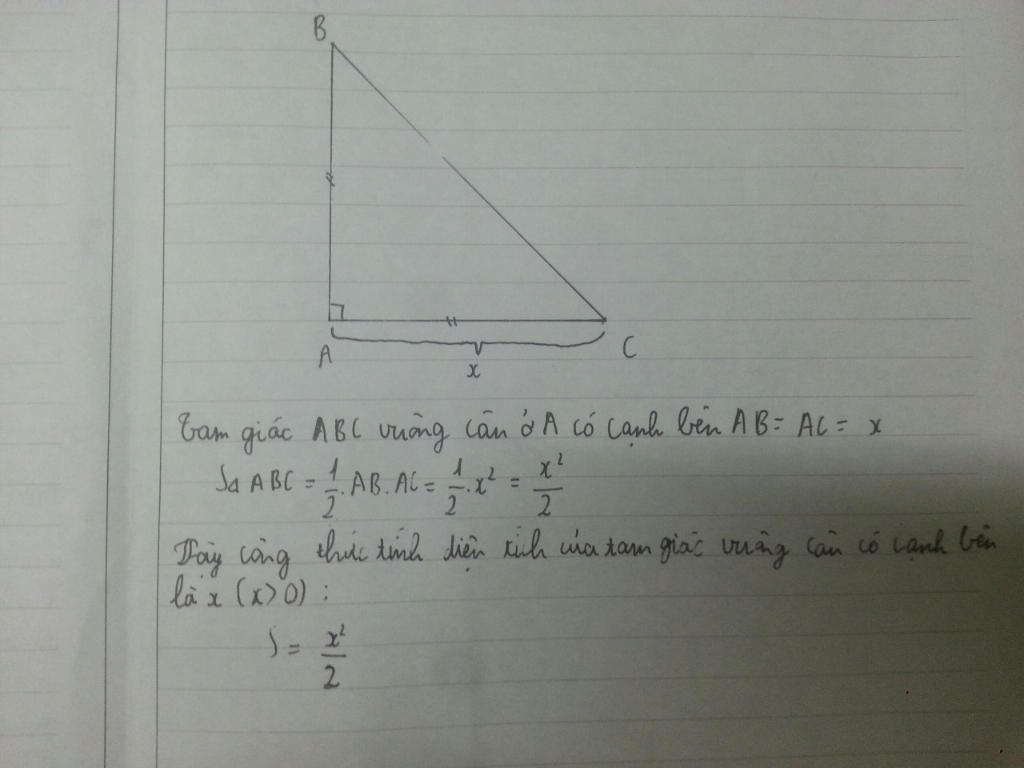 B
A
C
x
Tam giác ABC vuông cân ở A có cạnh bên AB = AC = x
S△ ABC = 1/2 . AB . AC = 1/2 . x² = x²/2
Vậy công thức tính diện tích của tam giác vuông cân có cạnh bên
là x (x > 0) :
S = x²/2